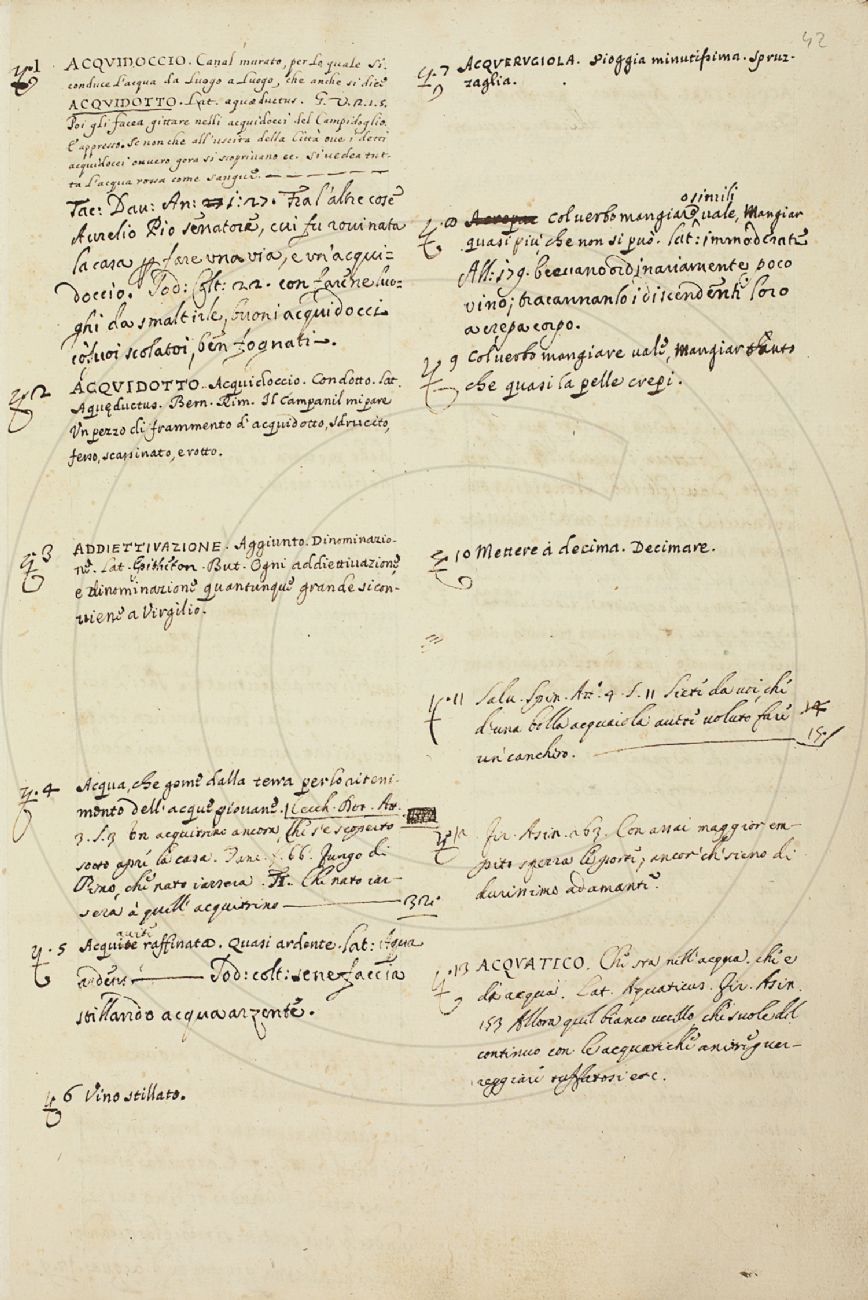 42
1 ACQVIDOCCIO. Canal murato, per lo quale si
conduce l'acqua da luogo a luogo, che anche si dice
ACQVIDOTTO. Lat. aquæductus. G. V. 12. 1. 5.
Poi gli facea gittare nelli acquidocci del Campidoglio
e appresso. Se non che all'uscita della Città ove i detti
acquidocci ovvero gora si scoprivano ec. si vedea tut-
ta l'acqua rossa come sangue.
Tac: Dav: An: 1: 27. Fra l'altre cose
Aurelio Pio senatore, cui fu rovinata
la casa fare una via, e un'acqui-
doccio. Tod: Colt: 22. con farne luo-
ghi da smaltirle, buoni acquidocci
co' suoi scolatoi, ben fognati.
2 ACQVIDOTTO. Acquidoccio. Condotto. lat.
Aquęductus. Bern. Rim. Il Campanil mi pare
Un pezzo di frammento d'acquidotto, sdrucito,
fesso, scassinato, e rotto.
3 ADDIETTIVAZIONE. Aggiunto. Dinominazio-
ne. Lat. Epitheton. But. Ogni addiettivazione,
e dinominazione quantunque grande si con-
viene a Virgilio.
4 Acqua, che geme dalla terra per lo riteni-
mento dell'acque piovane. Cecch.
3. S. 3 un acquitrino ancora, che s'è scoperto
sotto la casa. 66. fungo di
Pino, che nato
serà à quell'acquitrino 32.
5 raffinata. Quasi ardente. Lat: Aqua
ardens Tod: colt: se ne faccia
stillando acqua arzente.
6 Vino stillato.
7 ACQVERVGIOLA. Pioggia minutissima. Spruz-
zaglia.
o simili
col verbo mangiare vale, Mangiar
quasi più che non si può. lat: immoderate
All: 179. beevano ordinariamente poco
vino; tracannanlo i discendenti loro
a crepa corpo.
9 Col verbo mangiare vale, Mangiar tanto
che quasi la pelle crepi.
10 Mettere à decima. Decimare.
11 Salv. Spin. At. 4. S. 11
d'una bella acquaiola voluto fare
15.
un canchero.
Fir. Asin. 263. Con assai maggior em-
pito sperza le porti, ancor ch'sieno di
durissimo adamante.
13 ACQVATICO. Che sta nell'acqua, che è
da acqua. Lat. Aquaticus. Fir. Asin.
153 Allora quel bianco uccello, che suole del
continuo con le acquatiche anitre guer-
reggiare tuffatosi etc.